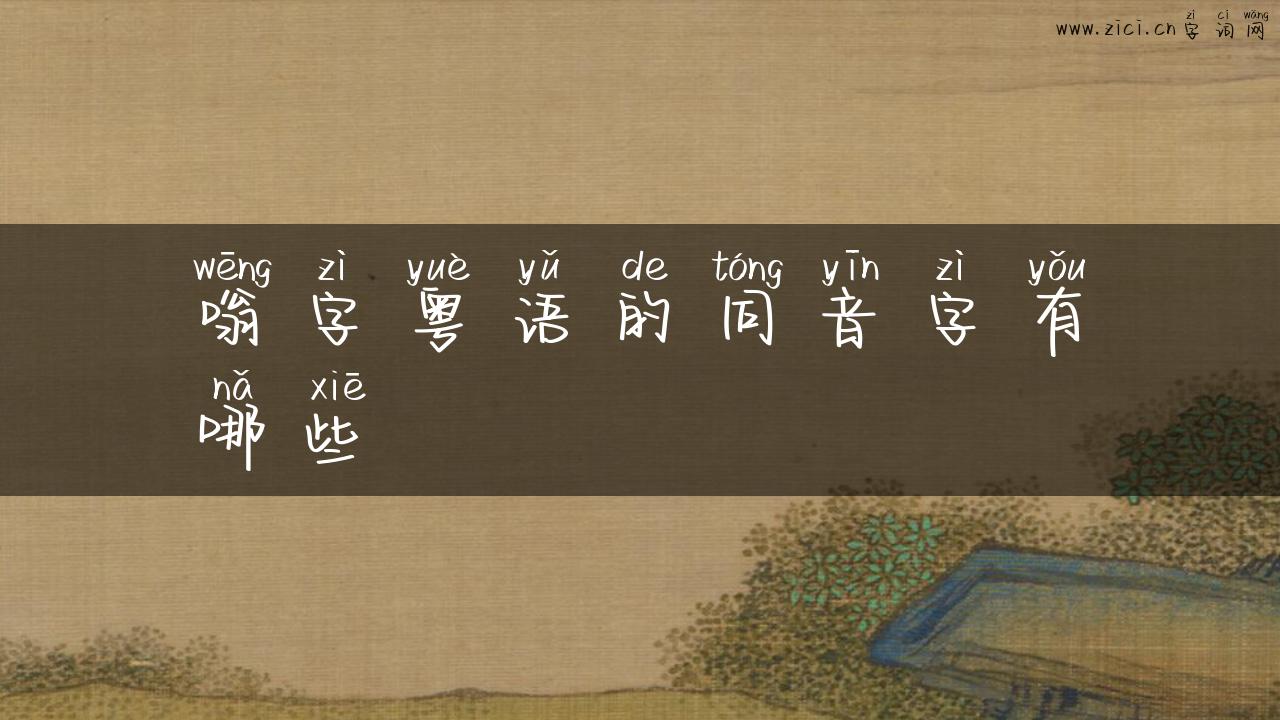 zì cí wǎng
www.zici.cn字词网
wēng zì yuè yǔ de tóng yīn zì yǒu
嗡字粤语的同音字有
nǎ xiē
哪些